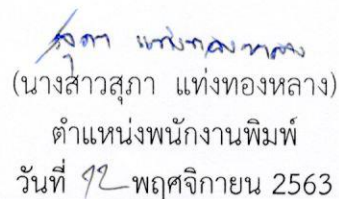 สุภา แท่งทองหลาง
(นางสาวสุภา แท่งทองหลาง)
ตำแหน่งพนักงานพิมพ์
วันที่ 12 พฤศจิกายน 2563